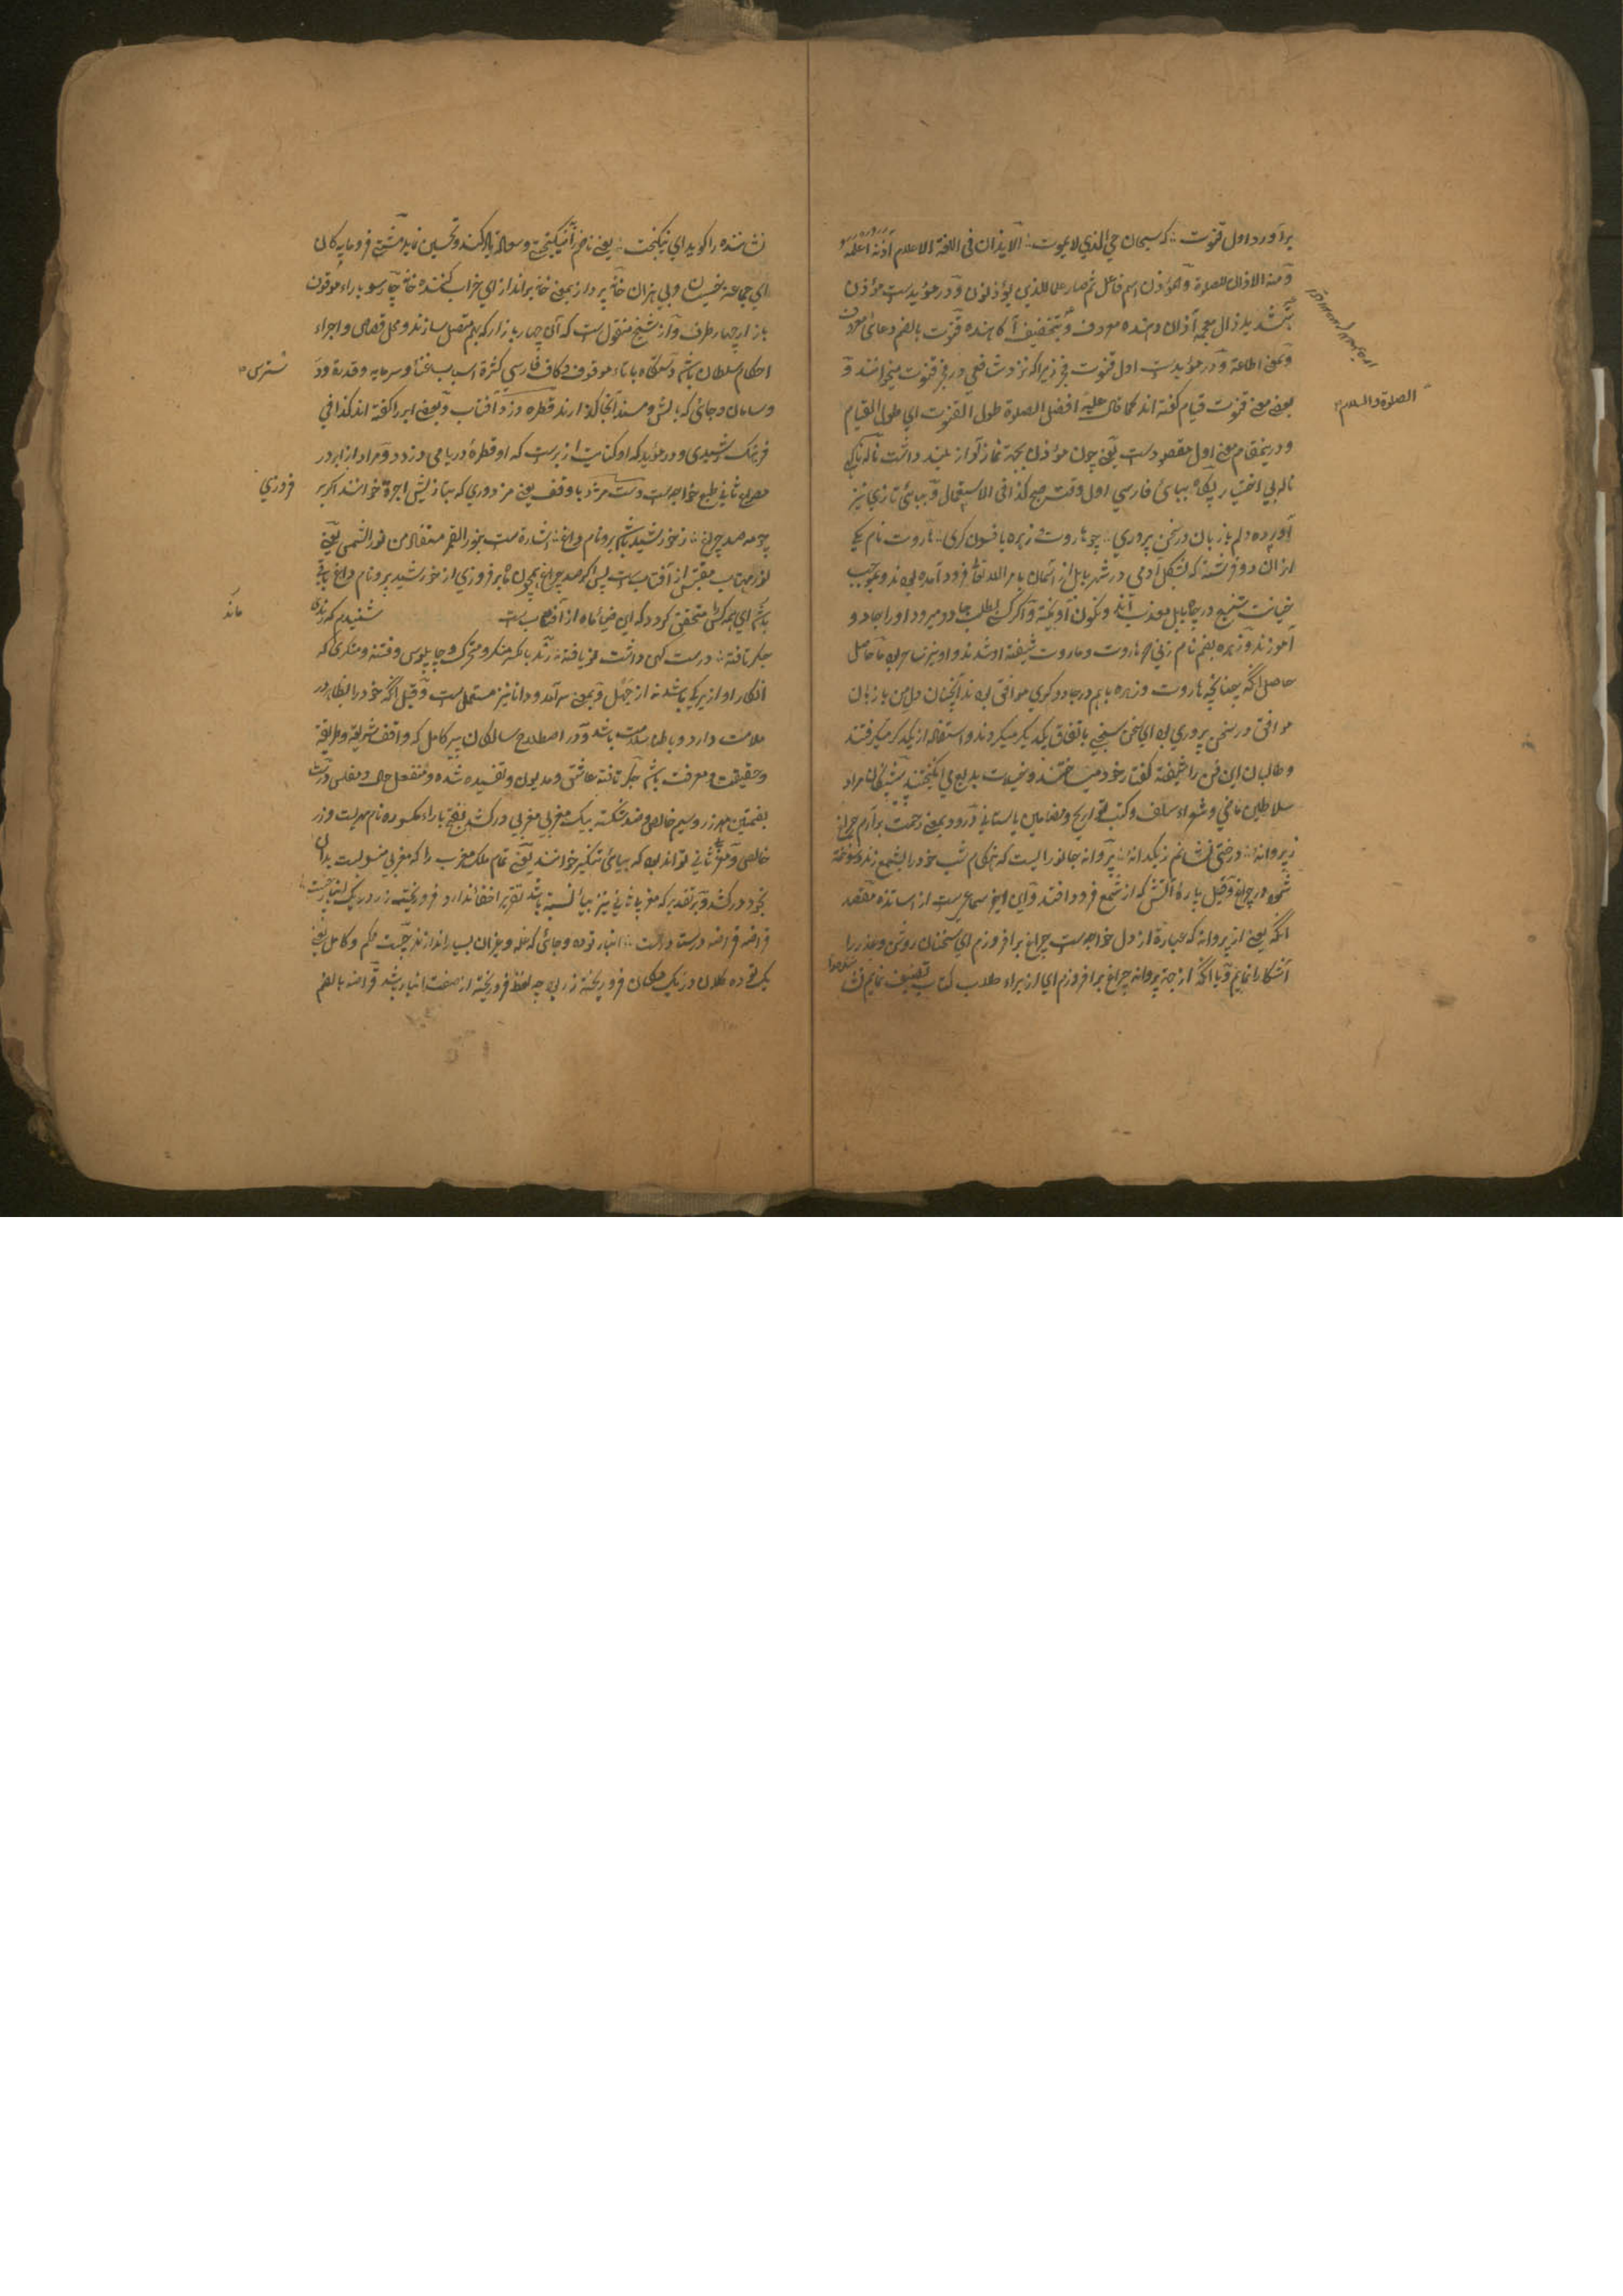 برآورد اول قنوت :: که سبحان حي الذي لا يموت :: الايذان فی اللغة الاعلام آذنه اعلمه
ومنه الاذان للصلوة والموذن اسم فاعل ثم صار علما للذي يؤذنون ودر مؤيدست مؤذن
بتشديد ذال معجمه آذان دهنده معروف وبتخفيف آگاهنده قنوت بالضم دعائ معروف
وبمعنے اطاعة ودر مؤيدست اول قنوت فجر زيراکه نزد شافعي در فجر قنوت ميخوانند و
بعضے معنے قنوت قيام گفته اند کما قال عليه افضل الصلوة طول القنوت اي طول القيام
الصلوة والسلام
ودرينمقام معنے اول مقصودست يعنے چون مؤذن بجهة نماز آواز بلند داشت ناگه يکي
ناله بي اختيار پگاه ببائ فارسي اول وقت صبح کذا فی الاستعمال وببائ تازي نيز
آورده دلم با زبان در سخن پروري :: چو هاروت و زهره بافسون گری :: هاروت نام يکے
ازان دو فرشته که بشکل آدمي در شهر بابل از آسمان بامر الله تعا فرود آمده بودند وبموجب
خيانت شنيع در چاه بابل معذب اند ونگون آويخته واگر کسے بطلب جادو ميرود او را جادو
آموزند وزهره بضم نام زني که هاروت وماروت شيفته او شدند واو نيز ساحره ما حاصل
حاصل آنکه چنانچه هاروت وزهره باهم در جادوگري موافق بودند آنچنان دل من با زبان
موافق در سخن پروري بود اي سخن سنجي باتفاق يکديگر ميکردند واستفاده از يکديگر ميگرفتند
وطالبان اين فن را شيفته گفتار خود ميساختند
سلاطين ماضي وشعراء سلف وکتب تواريخ ومضامين باستاني درود بمعنے رحمت برآرم چراغ
ز پروانهٔ :: درختي نشانم ز يکدانهٔ :: پروانه جانوريست که هنگام شب خود را بشمع زند وسوخته
شود در چراغ وقيل پارهٔ آتش که از شمع فرود افتد واين اخير سماعيست از اساتذه مقصد
آنکه يعنے از پروانه که عبارة از دل خواجه ست چراغ برافروزم اي سخنان روشن
آشکارا نمايم ويا آنکه از جهة پروانه چراغ برافروزم اي از براء طلاب کتاب تصنيف نمايم
نشاننده را گويد اي نيکبخت :: يعنے تا مرا نيکبختي وسعادة ياد کنند وتحسين نمايند فرومايه گان
اي جماعة خسيسان وبي هنران خانه پرداز بمعنے خانه برانداز اي خراب کننده خانه چارسو براء موقوف
بازار چهار طرف واز شيخ منقول ست که آن چهار بازار که بهم متصل سازند ومحل قصاص واجراء
احکام سلطان باشد دستگاه باتاء موقوف وکاف فارسي کثرة اسباب غنا وسرمايه وقدرة
وسامان وجائ که بالش ومسند آنجا گذارند قطره دزد آفتاب وبعضے ابر را گفته اند کذا في
فرهنگ رشيدي ودر مؤيد که او کنايت از ابرست که او قطرهٔ دريا مي دزدد ومراد از ابر در
مصراع ثاني طبع خواجه ست دست مزد باوقف يعنے مزدوري که بتازيش اجرة خوانند اگر بر
فروزي
چو مه صد چراغ :: ز خورشيد باشد برو نام داغ :: اشارة ست بنور القمر مستفاد من نور الشمس يعنے
نور مهتاب مقتبس از آفتاب ست پس اگر صد چراغ همچون ماه برفروزي از خورشيد برو نام داغ باقي
ماند
باشد اي همه کس را متحقق گردد که اين ضيائ ماه از آفتاب ست شنيدم که رندي
جگر تافته :: درست کهن داشت نو يافته :: رند بالکسر منکر ومتحرک وچاپلوس وفتنه ومنکري که
انکار او از زيرکي باشد نه از جهل وبمعنے سرآمد ودانا نيز مستعمل ست وقيل آنکه خود را بظاهر در
ملامت دارد وباطنا سلامت باشد ودر اصطلاح سالکان پير کامل که واقف شريعة وطريقة
وحقيقت ومعرفت باشد جگر تافته عاشق ومديون وتفسيده شده ومنفعل حال ومفلس درست
بضمتين مهر زر وسيم خالص وضد شکسته بيک مغربي مغربي درکشد بفتح با راء مکسوره نام مهريست وزر
خالص ومغربي ثاني تواند بود که بيائ تنکير خوانند يعنے تمام ملک مغرب را که مغربي منسوبست بدان
بخود درکشد وبر تقديرکه مغربي ثاني نيز بيائ نسبة باشد تقرير اخفائ ندارد فرو ريخت زر در يک انبار چست
قراضه قراضه درست درست :: انبار توده وجائ که غله وهيزم آن بسيار اندازند چست محکم وکامل يعنے
يک توده کلان در يک مکان فرو ريخته زر بود چه لفظ فرو ريخته از صفت انبار باشد قراضه بالضم